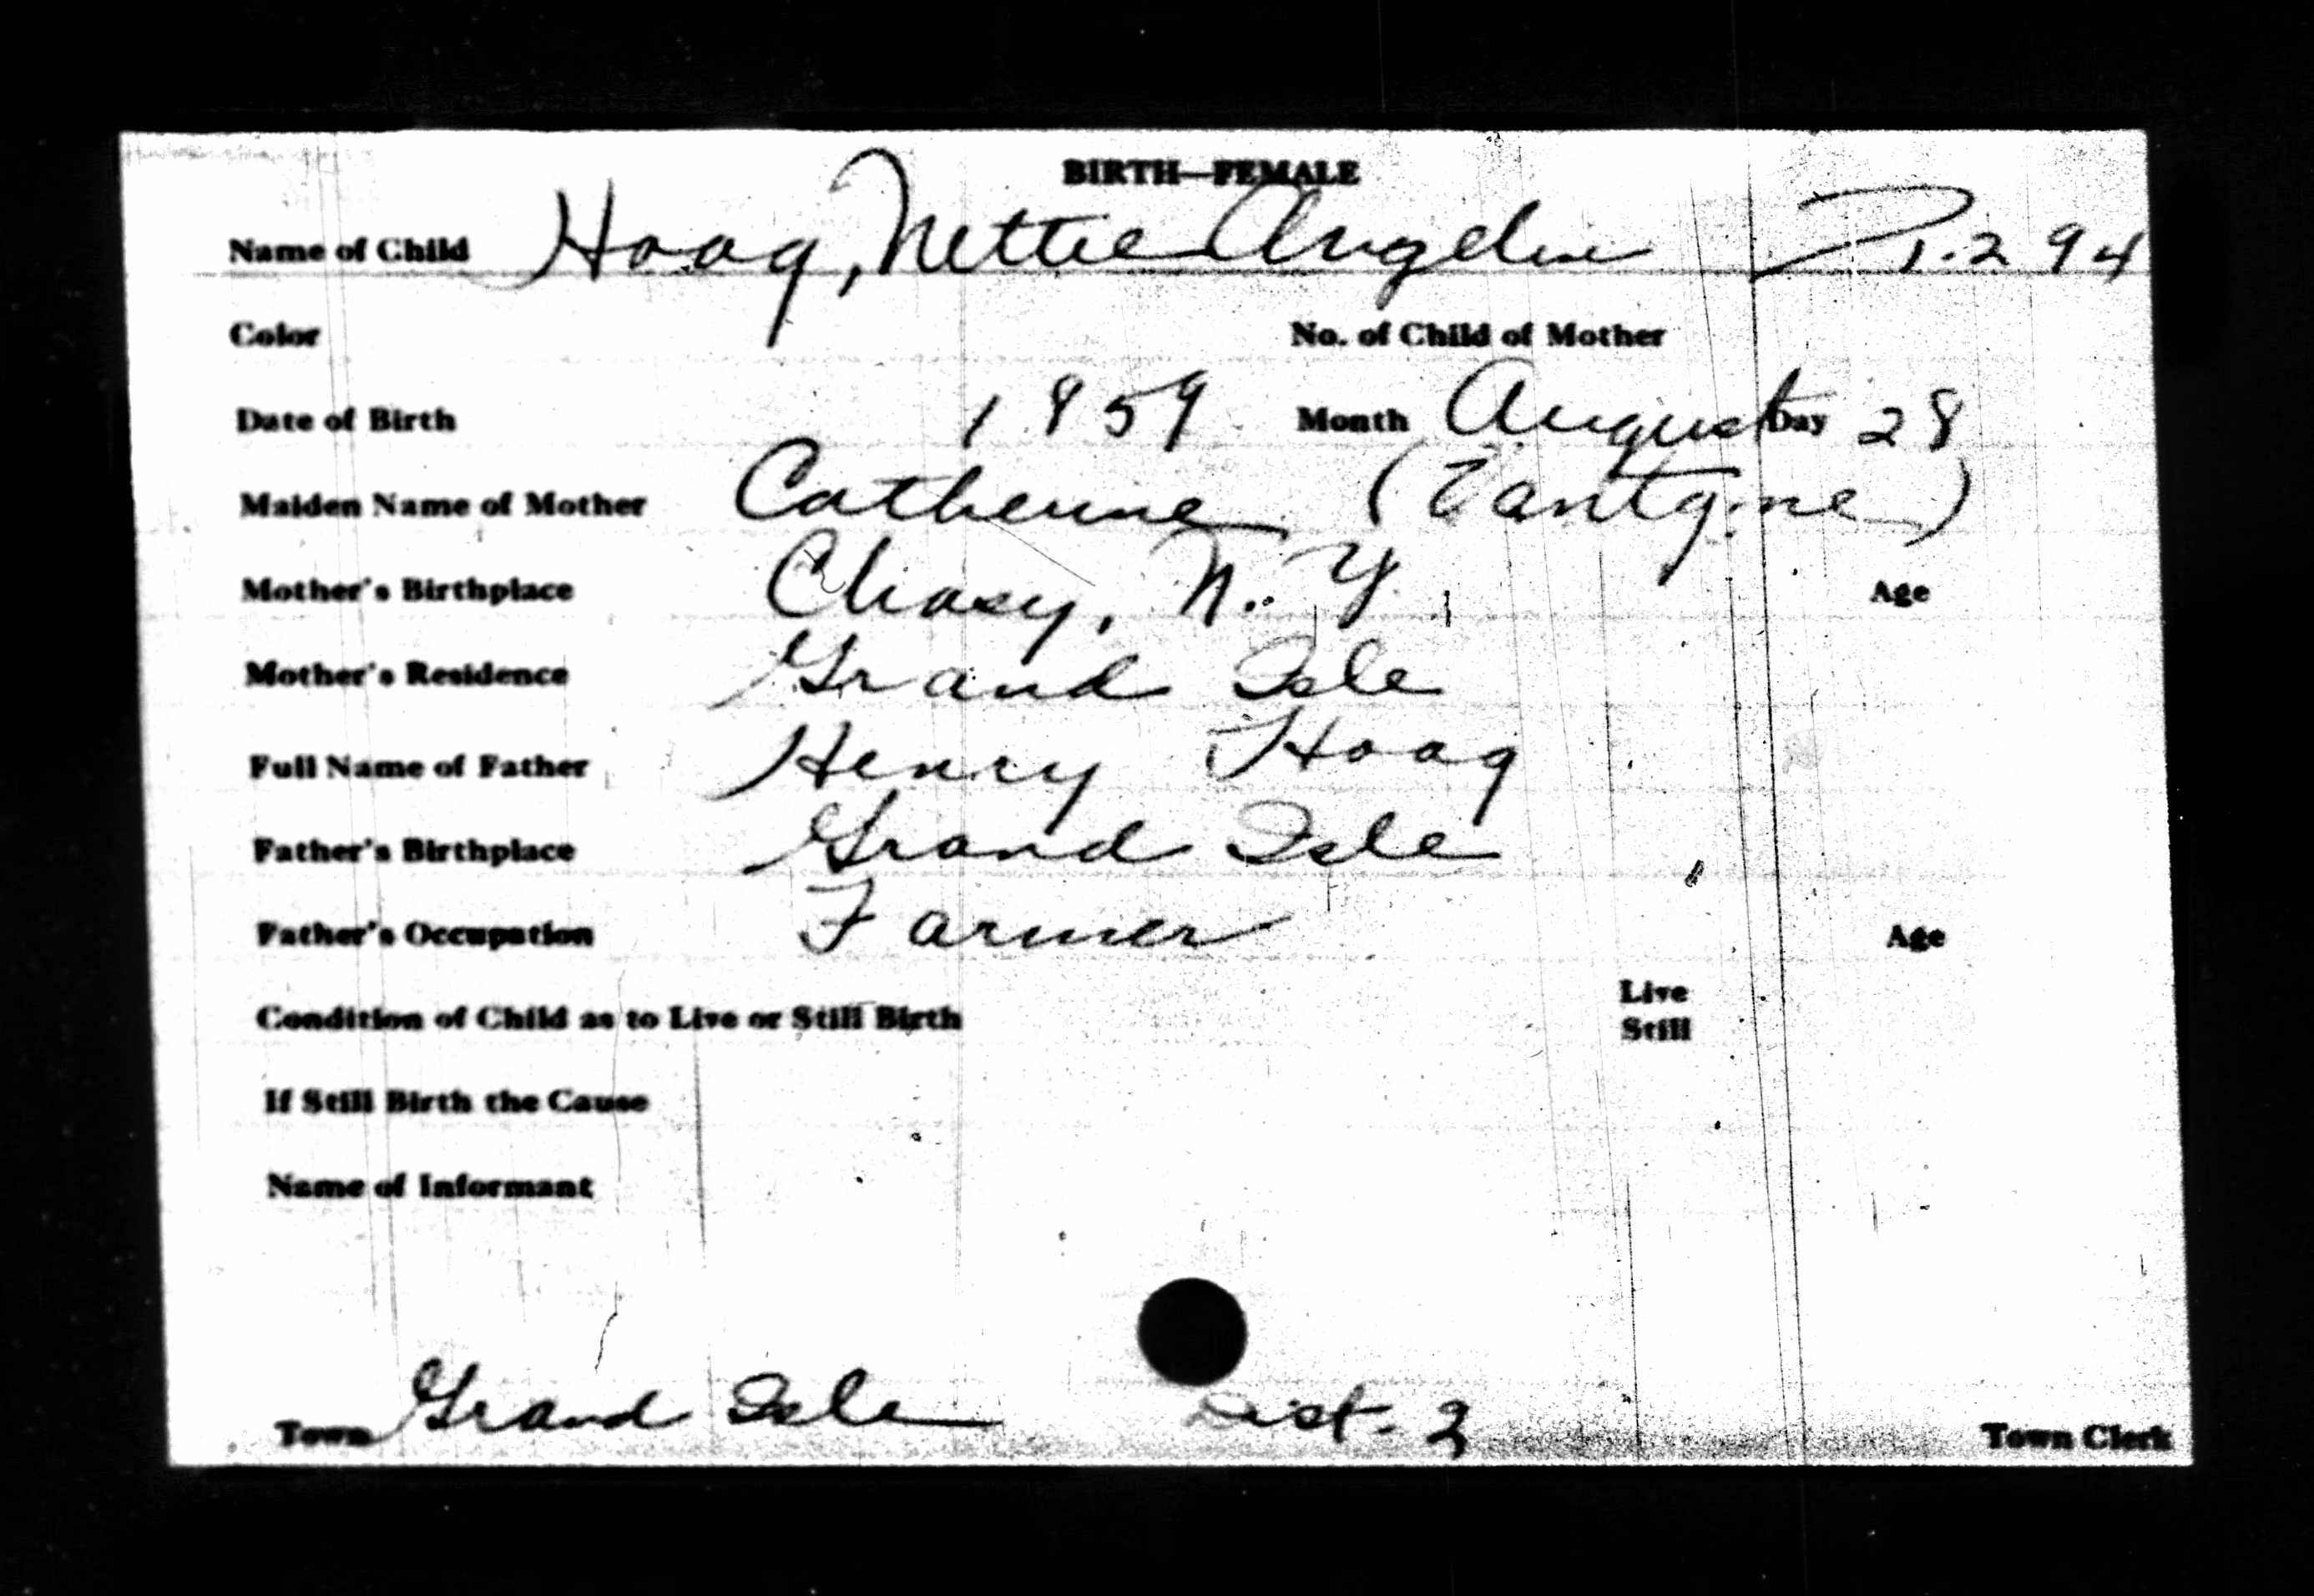 BIRTH—FEMALE
Name of Child Hoag, Nettie Angeline P. 294
Color No. of Child of Mother
Date of Birth 1859 Month August Day 28
Maiden Name of Mother Catherine (Tantgine)
Mother's Birthplace Chasy, N.Y. Age
Mother's Residence Grand Isle
Full Name of Father Henry Hoag
Father's Birthplace Grand Isle
Father's Occupation Farmer Age
Condition of Child as to Live or Still Birth Live
Still
If Still Birth the Cause
Name of Informant
Town Grand Isle Dist. 2 Town Clerk